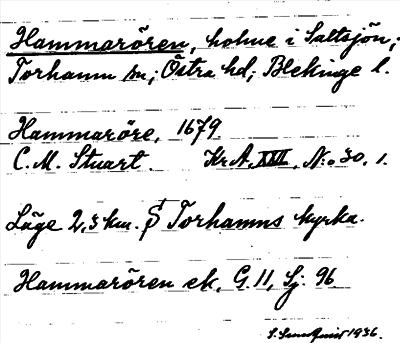 Hammarören, holme i Saltsjön;
Torhamn sn; Östra hd; Blekinge l.
Hammaröre, 1679
C. M. Stuart. Kr. A. XVII, N:o 30, 1.
Läge 2,5 km. S Torhamns kyrka.
Hammarören ek, G. 11, Sj: 96
1936.